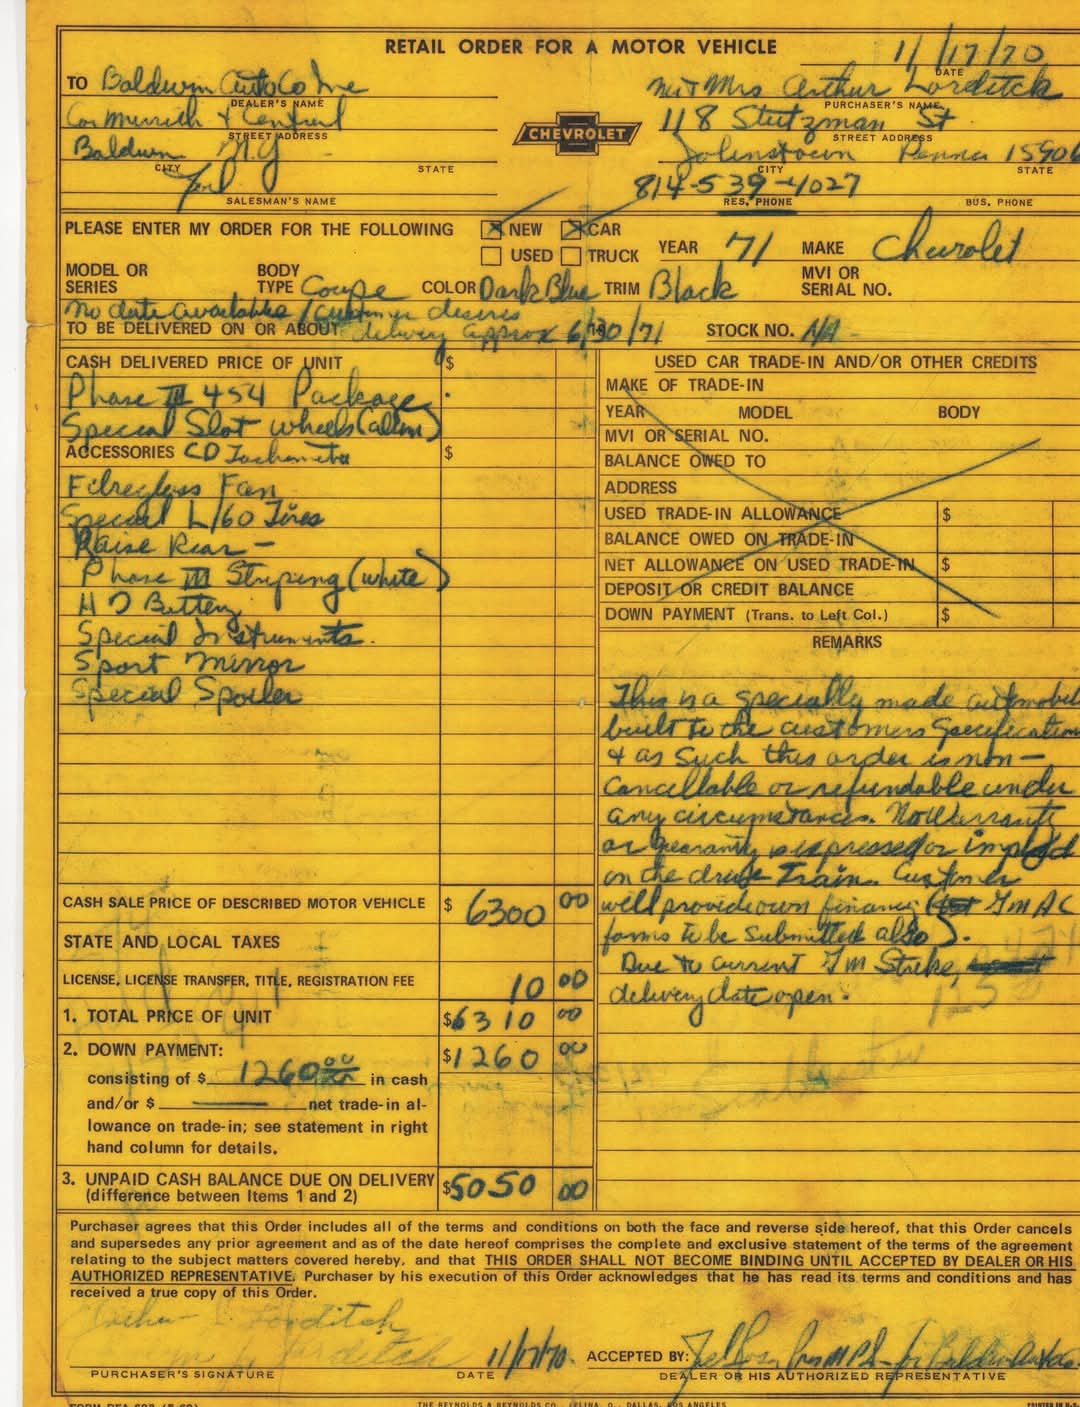 RETAIL ORDER FOR A MOTOR VEHICLE
11/17/70
DATE
TO Baldwin Auto Co Inc
DEALER'S NAME
Mr & Mrs Arthur Lorditch
PURCHASER'S NAME
Cor Merrick & Central
STREET ADDRESS
CHEVROLET
118 Stutzman St
STREET ADDRESS
Baldwin N.Y
CITY STATE
Johnstown Penna 15906
CITY STATE
SALESMAN'S NAME
814-539-4027
RES. PHONE BUS. PHONE
PLEASE ENTER MY ORDER FOR THE FOLLOWING X NEW X CAR
USED TRUCK YEAR 71 MAKE Chevrolet
MODEL OR SERIES BODY TYPE Coupe COLOR Dark Blue TRIM Black MVI OR SERIAL NO.
No date available / customer desires
TO BE DELIVERED ON OR ABOUT delivery approx 6/30/71 STOCK NO. N/A
CASH DELIVERED PRICE OF UNIT $
Phase III 454 Package
Special Slot wheels (alum)
ACCESSORIES CD Tachometer $
Fibregloss Fan
Special L/60 Tires
Raise Rear -
Phase III Striping (white)
H D Battery
Special Instruments.
Sport Mirror
Special Spoiler
CASH SALE PRICE OF DESCRIBED MOTOR VEHICLE $ 6300 00
STATE AND LOCAL TAXES
LICENSE, LICENSE TRANSFER, TITLE, REGISTRATION FEE 10 00
1. TOTAL PRICE OF UNIT $6310 00
2. DOWN PAYMENT: $1260 00
consisting of $ 1260 00 in cash
and/or $ net trade-in al-
lowance on trade-in; see statement in right
hand column for details.
3. UNPAID CASH BALANCE DUE ON DELIVERY $5050 00
(difference between Items 1 and 2)
USED CAR TRADE-IN AND/OR OTHER CREDITS
MAKE OF TRADE-IN
YEAR MODEL BODY
MVI OR SERIAL NO.
BALANCE OWED TO
ADDRESS
USED TRADE-IN ALLOWANCE $
BALANCE OWED ON TRADE-IN
NET ALLOWANCE ON USED TRADE-IN $
DEPOSIT OR CREDIT BALANCE
DOWN PAYMENT (Trans. to Left Col.) $
REMARKS
This is a specially made automobile
built to the customers specification
& as such this order is non-
cancellable or refundable under
any circumstances. No Warranty
or guaranty is expressed or implied
on the drive Train. Customer
will provide own financing ( GMAC
forms to be submitted also).
Due to current GM Strike,
delivery date open.
Purchaser agrees that this Order includes all of the terms and conditions on both the face and reverse side hereof, that this Order cancels
and supersedes any prior agreement and as of the date hereof comprises the complete and exclusive statement of the terms of the agreement
relating to the subject matters covered hereby, and that THIS ORDER SHALL NOT BECOME BINDING UNTIL ACCEPTED BY DEALER OR HIS
AUTHORIZED REPRESENTATIVE. Purchaser by his execution of this Order acknowledges that he has read its terms and conditions and has
received a true copy of this Order.
Lorditch
11/17/70. ACCEPTED BY:
PURCHASER'S SIGNATURE DATE DEALER OR HIS AUTHORIZED REPRESENTATIVE
THE REYNOLDS & REYNOLDS CO., CELINA, O., DALLAS, LOS ANGELES
PRINTED IN U.S.